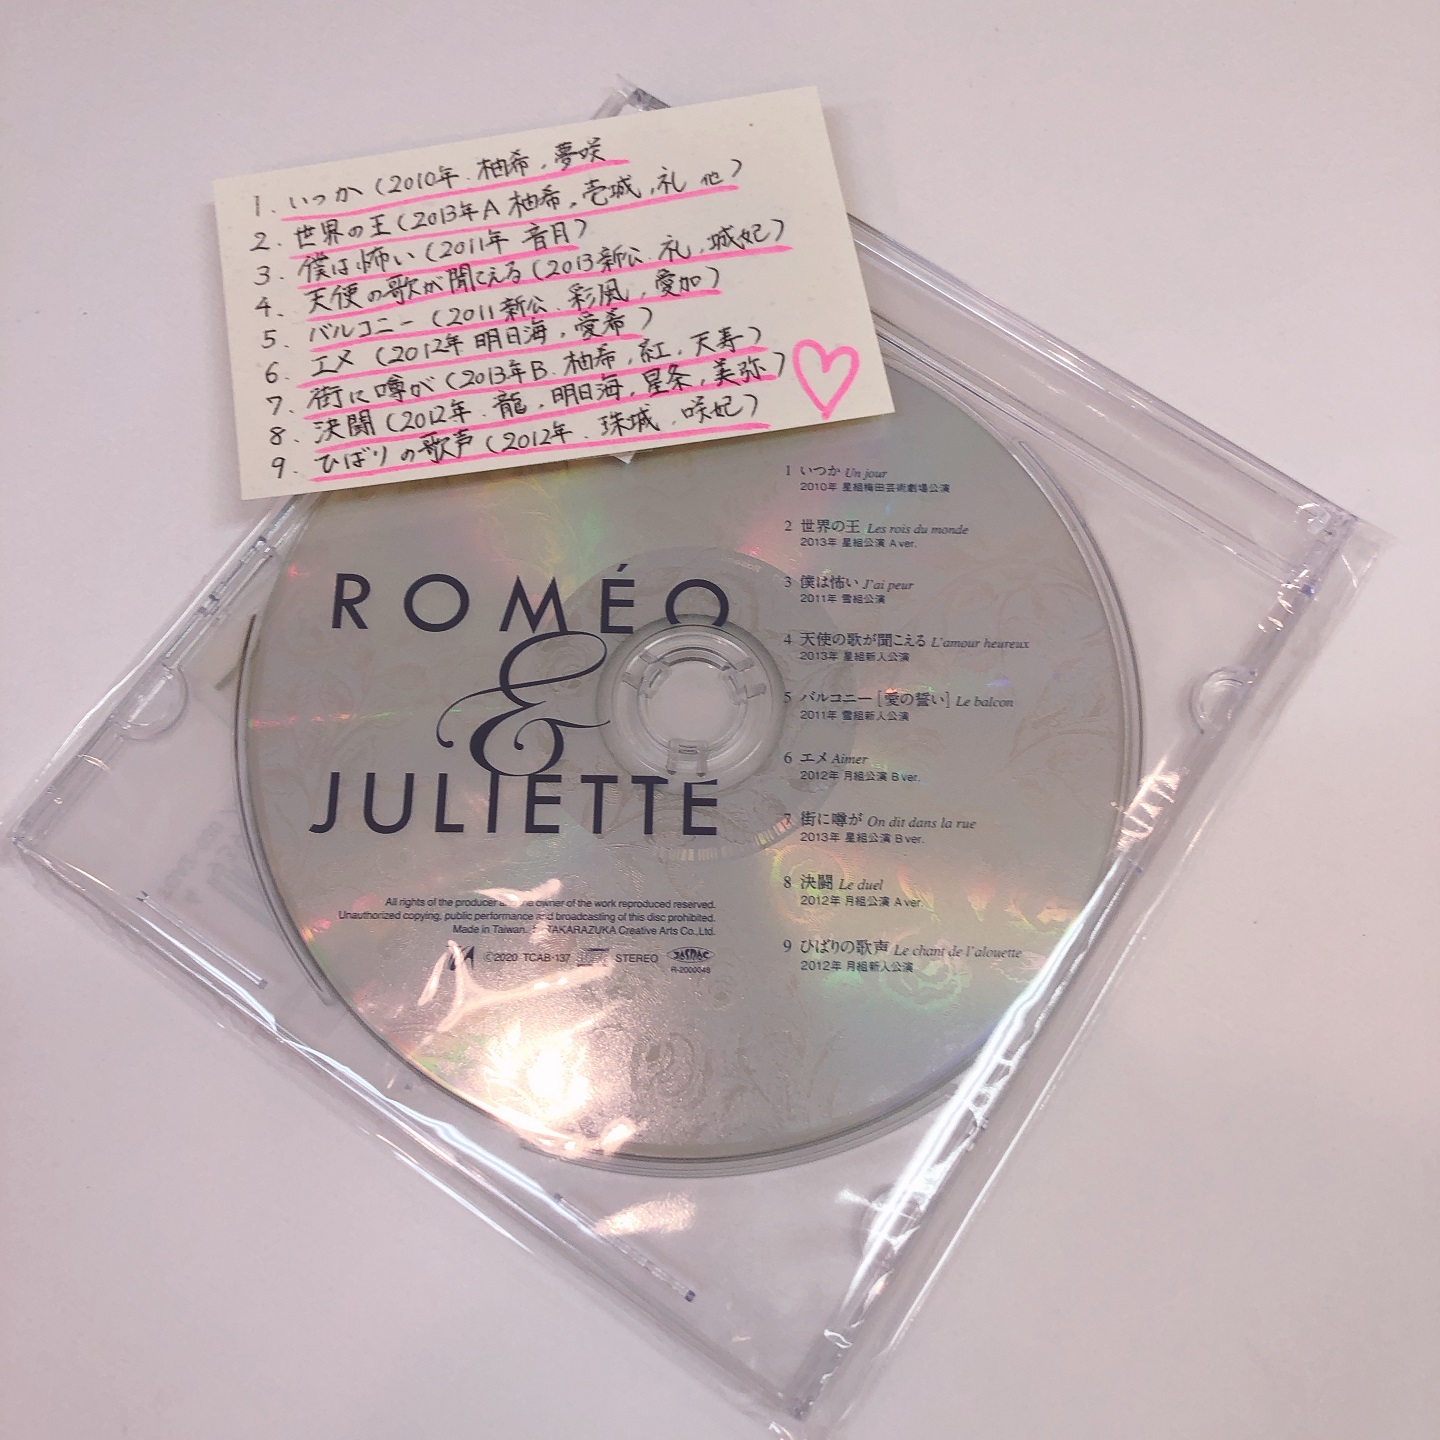 1. いつか (2010年. 柚希, 夢咲
2. 世界の王 (2013年A 柚希, 壱城, 礼 他)
3. 僕は怖い (2011年 音月)
4. 天使の歌が聞こえる (2013新公. 礼, 城妃)
5. バルコニー (2011新公. 彩風, 愛加)
6. エメ (2012年 明日海, 愛希)
7. 街に噂が (2013年B. 柚希, 紅, 天寿)
8. 決闘 (2012年. 龍, 明日海, 星条, 美弥)
9. ひばりの歌声 (2012年. 珠城, 咲妃)
ROMÉO
&
JULIETTE
1 いつか Un jour
2010年 星組梅田芸術劇場公演
2 世界の王 Les rois du monde
2013年 星組公演 A ver.
3 僕は怖い J'ai peur
2011年 雪組公演
4 天使の歌が聞こえる L'amour heureux
2013年 星組新人公演
5 バルコニー [愛の誓い] Le balcon
2011年 雪組新人公演
6 エメ Aimer
2012年 月組公演 B ver.
7 街に噂が On dit dans la rue
2013年 星組公演 B ver.
8 決闘 Le duel
2012年 月組公演 A ver.
9 ひばりの歌声 Le chant de l'alouette
2012年 月組新人公演
All rights of the producer owner of the work reproduced reserved.
Unauthorized copying, public performance and broadcasting of this disc prohibited.
Made in Taiwan. TAKARAZUKA Creative Arts Co.,Ltd.
©2020 TCAB-137 STEREO JASRAC
R-2000048